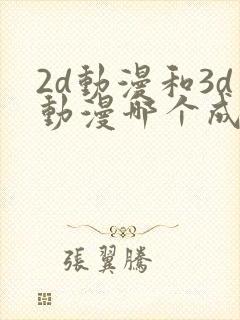 2d動漫和3d
動漫哪个成
張翼騰